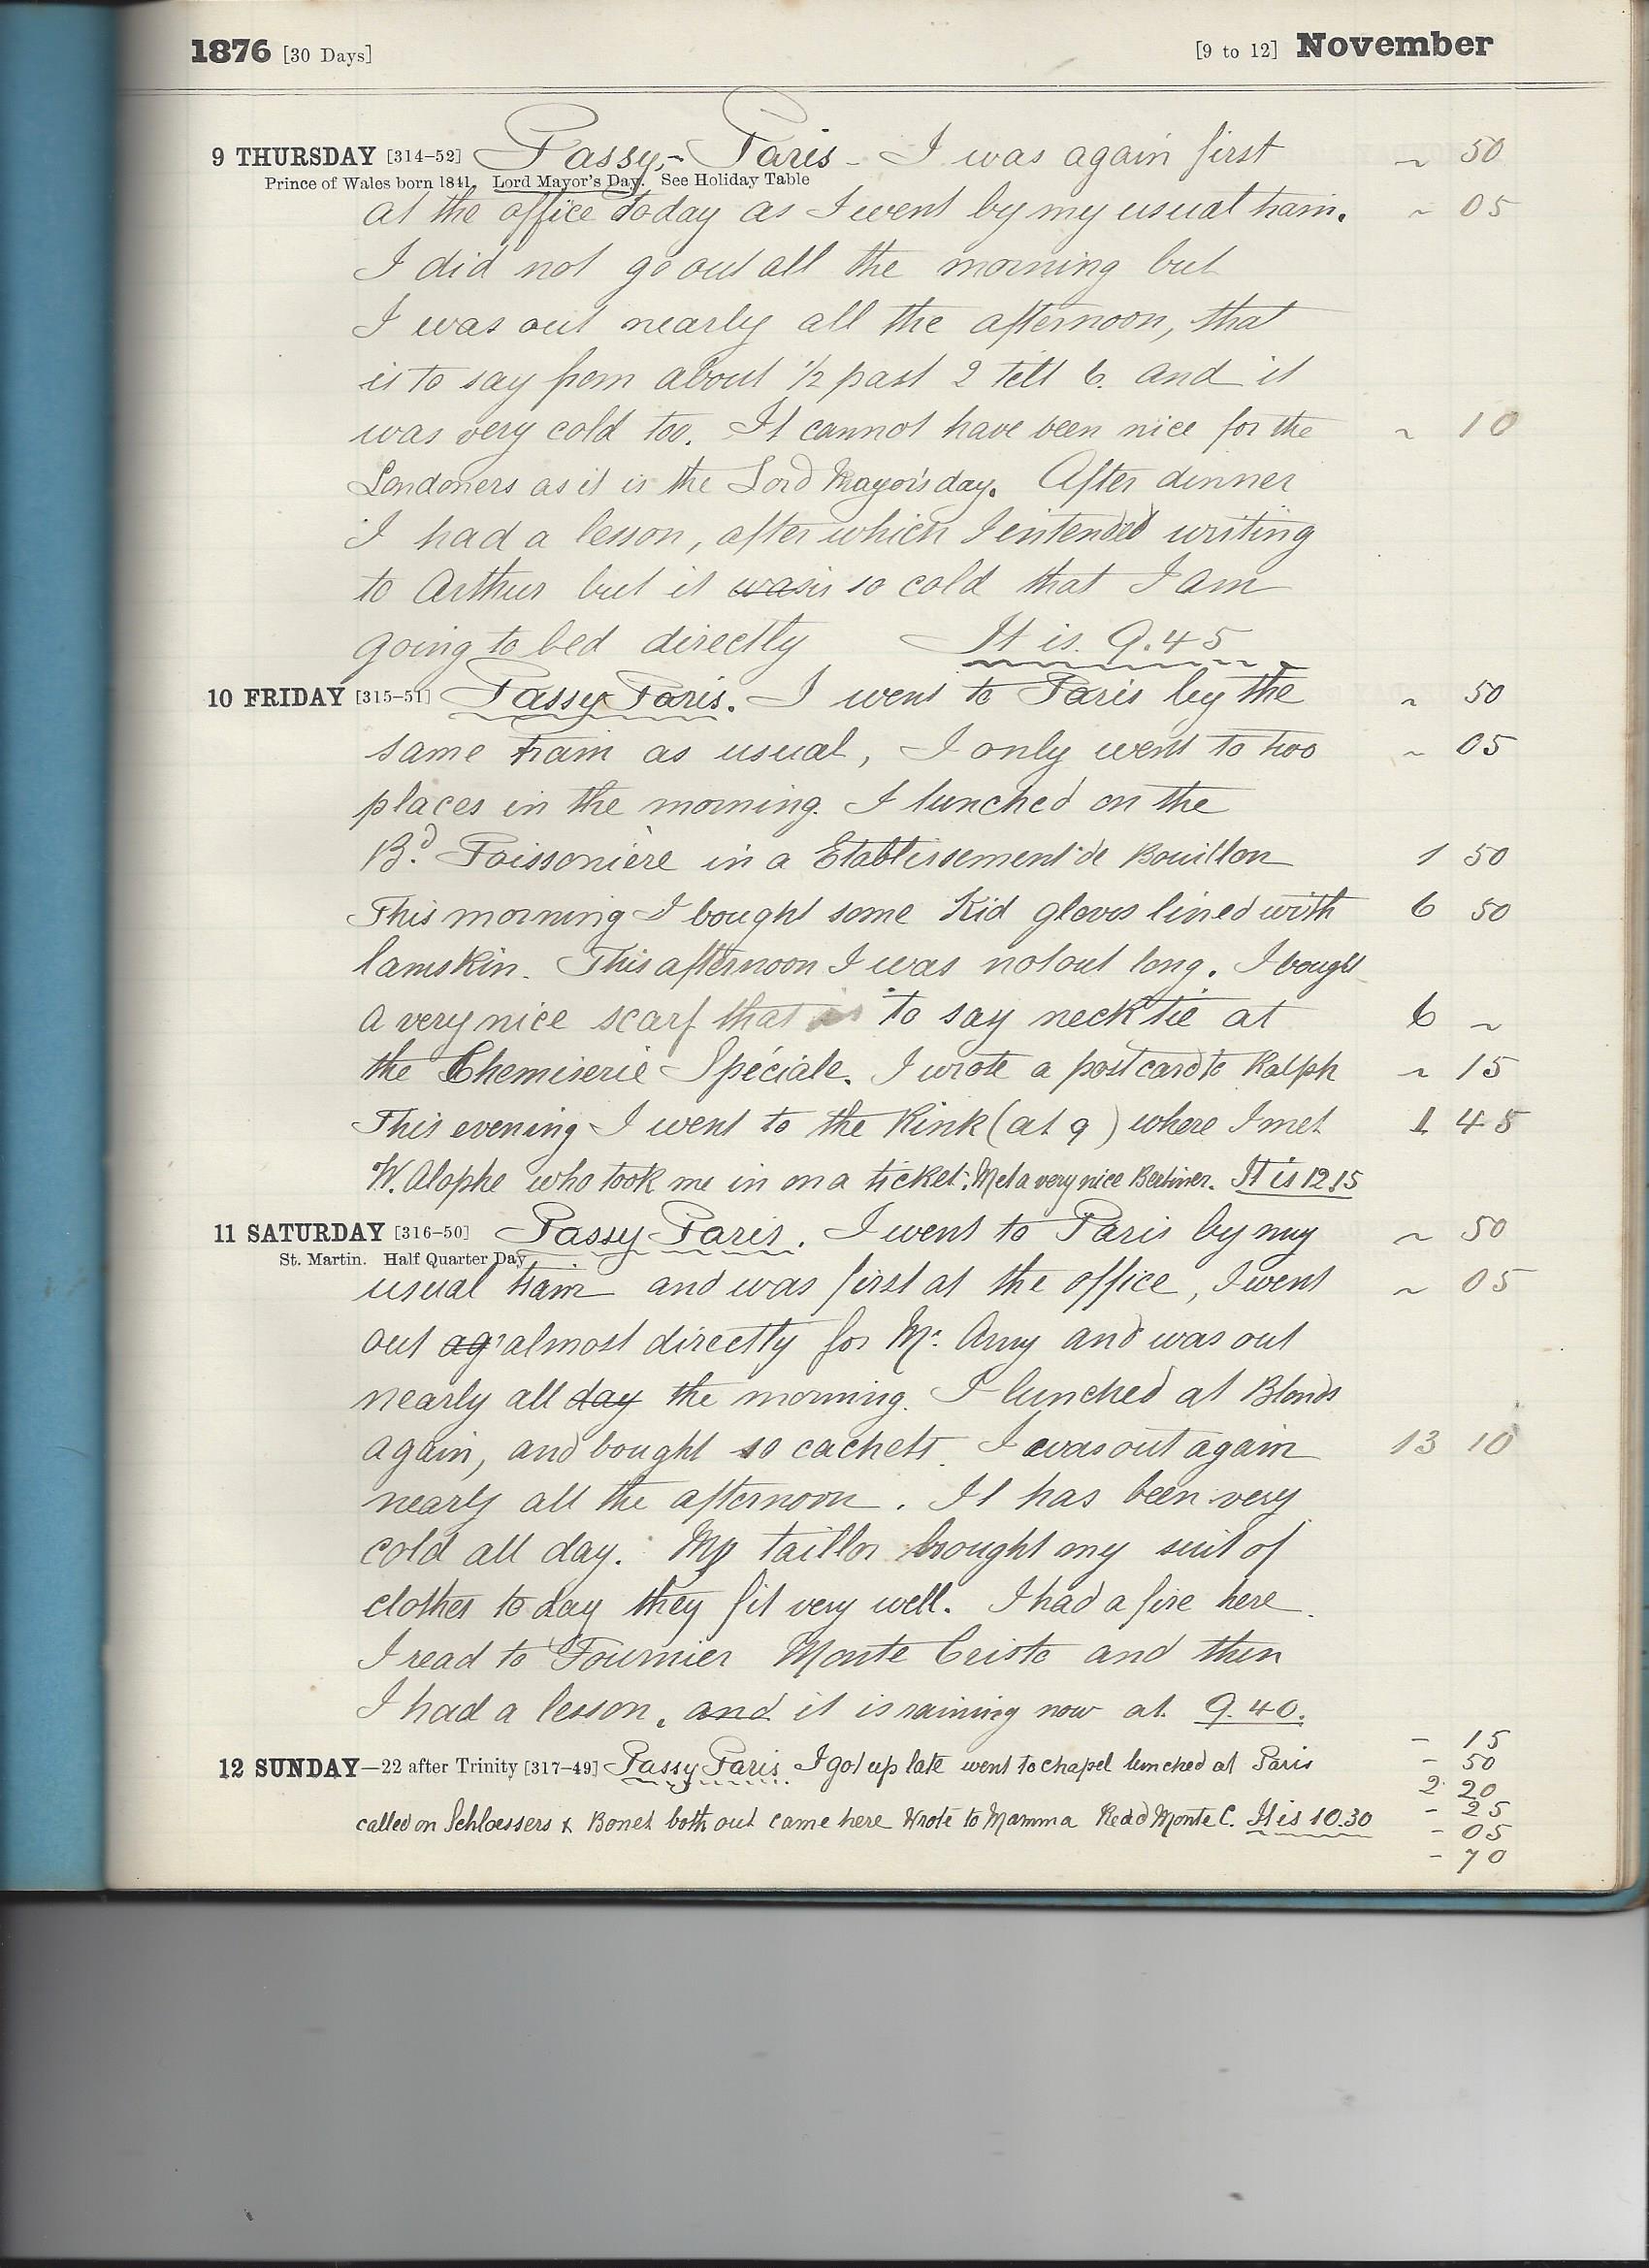 1876 [30 Days] [9 to 12] November
9 THURSDAY [314–52] Passy-Paris - I was again first ~ 50
Prince of Wales born 1841. Lord Mayor's Day. See Holiday Table
at the office today as I went by my usual train. ~ 05
I did not go out all the morning but
I was out nearly all the afternoon, that
is to say from about 1/2 past 2 till 6. and it
was very cold too. It cannot have been nice for the ~ 10
Londoners as it is the Lord Mayor's day. After dinner
I had a lesson, after which I intended writing
to Arthur but it was is so cold that I am
going to bed directly It is. 9.45
10 FRIDAY [315–51] Passy Paris. I went to Paris by the ~ 50
same train as usual, I only went to two ~ 05
places in the morning. I lunched on the
Bd. Poissonière in a Etablissement de Bouillon 1 50
This morning I bought some Kid gloves lined with 6 50
lamskin. This afternoon I was not out long. I bought
a very nice scarf that is to say neck tie at 6 ~
the Chemiserie Spéciale. I wrote a post card to Ralph ~ 15
This evening I went to the Rink (at 9) where I met 1 45
W. Alophe who took me in on a ticket. Met a very nice Berliner. It is 12.15
11 SATURDAY [316–50] Passy Paris. I went to Paris by my ~ 50
St. Martin. Half Quarter Day
usual train and was first at the office, I went ~ 05
out ag almost directly for Mr. Amy and was out
nearly all day the morning. I lunched at Blonds
again, and bought 10 cachets. I was out again 13 10
nearly all the afternoon. It has been very
cold all day. My taillor brought my suit of
clothes to day they fit very well. I had a fire here.
I read to Fournier Monte Cristo and then
I had a lesson. and it is raining now at 9.40.
- 15
12 SUNDAY—22 after Trinity [317–49] Passy Paris. I got up late went to chapel lunched at Paris - 50
2 20
called on Schloessers & Bonet both out came here Wrote to Mamma Read Monte C. It is 10.30 - 25
- 05
- 70